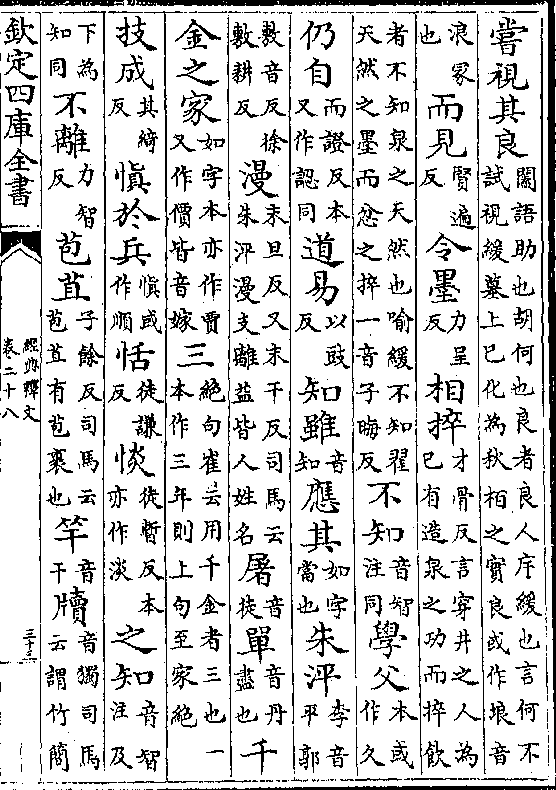 嘗視其良闔語助也胡何也良者良人序緩也言何不試視緩墓上已化為秋栢之實良或作埌音
浪冢也而見賢遍反令墨力呈反相捽才骨反言穿井之人為已有造泉之功而捽飲
者不知泉之天然也喻緩不知翟天然之墨而忿之捽一音子晦反不知音智注同學父本或作久
仍自而證反本又作認同道易以豉反知雖音知應其如字當也朱泙李音平郭
敷音反徐敷耕反漫末旦反又末干反司馬云朱泙漫支離益皆人姓名屠音徒單音丹盡也千
金之家如字本亦作賈又作價皆音嫁三絕句崔云用千金者三也一本作三年則上句至家絕
技成其綺反愼於兵愼或作順恬徒謙反惔徒暫反本亦作淡之知音智注及
下為知同不離力智反苞苴子餘反司馬云苞苴有苞裹也竿音干牘音獨司馬云謂竹簡
欽定四庫全書
經典釋文
卷二十八
三十三